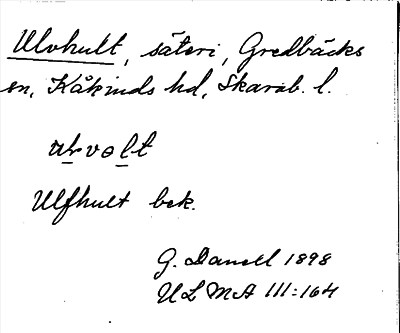 Ulvhult, säteri, Gredbäcks
sn, Kåkinds hd, Skarab. l.
urvolt
Ulfhult bek.
G. Danell 1898
ULMA 111:164